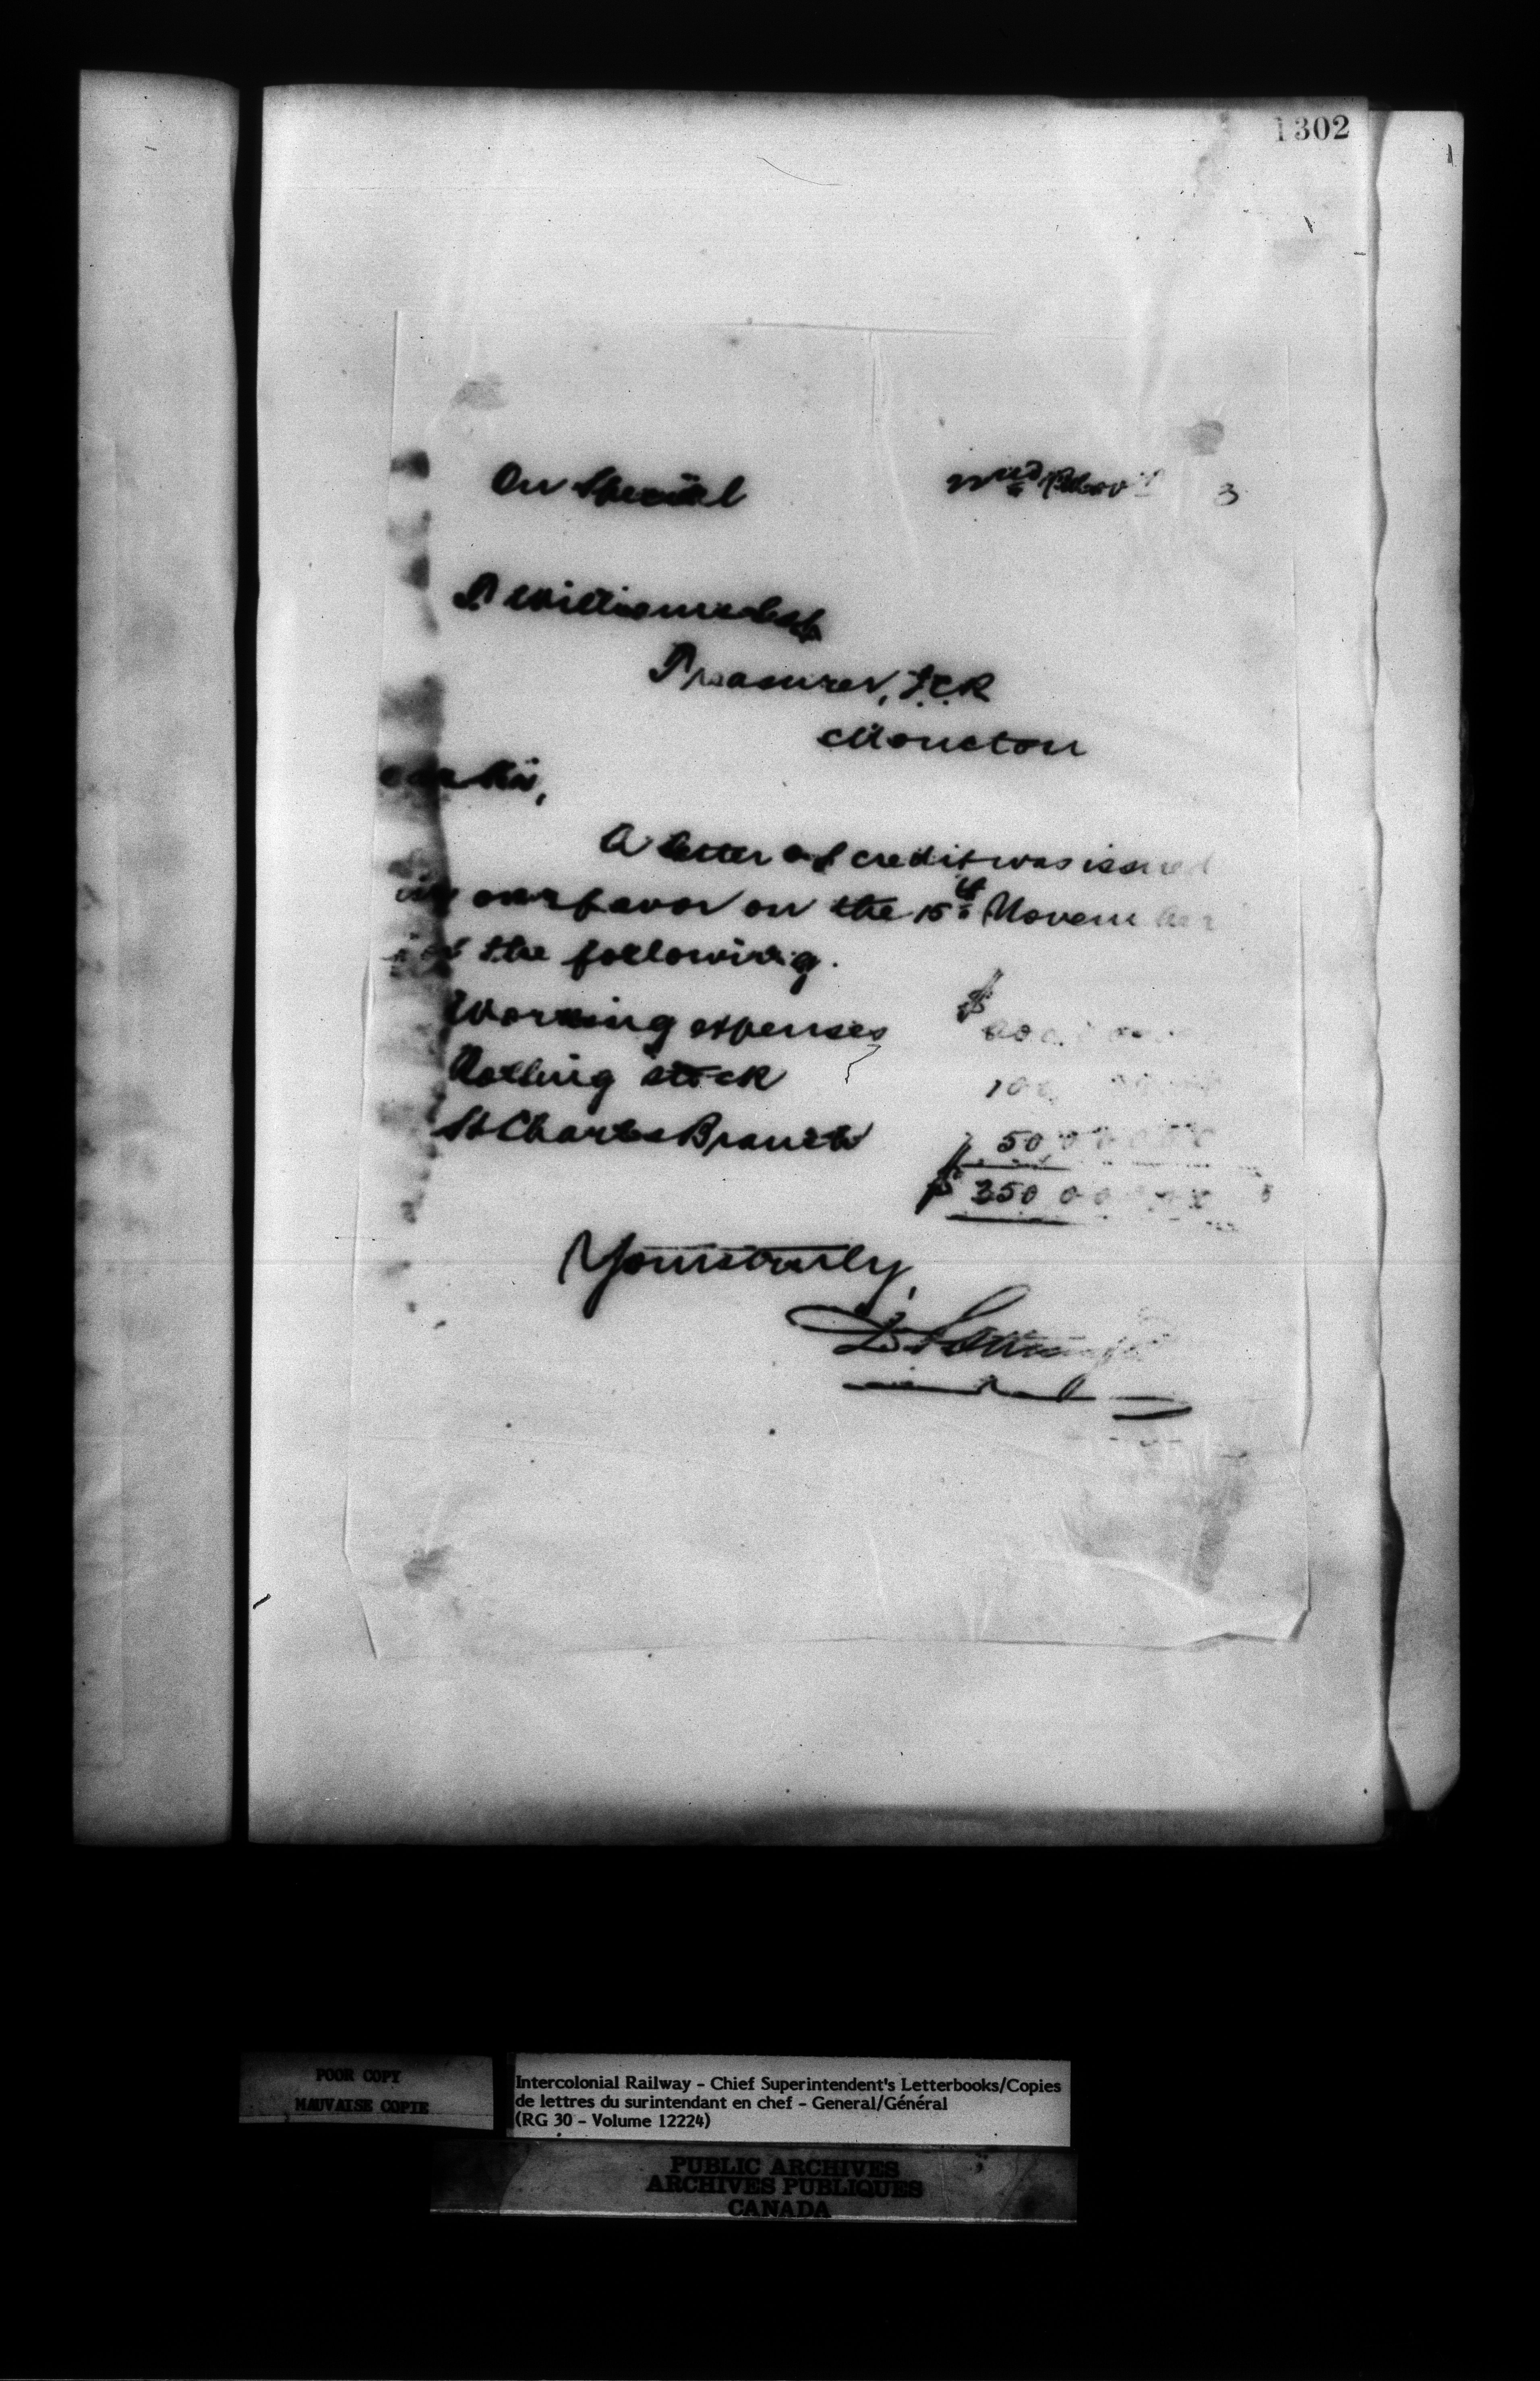 1302
On Special 22nd Nov 3
T Williams Esq
Treasurer, I.C.R
Moncton
Sir,
A letter of credit was issued
in our favor on the 15th November
the following.
Working expenses $
Rolling stock 100
St Charles Branch 50 000
$ 350 00
Yours truly,
D Pottinger
POOR COPY
MAUVAISE COPIE
Intercolonial Railway - Chief Superintendent's Letterbooks/Copies
de lettres du surintendant en chef - General/Général
(RG 30 - Volume 12224)
PUBLIC ARCHIVES
ARCHIVES PUBLIQUES
CANADA